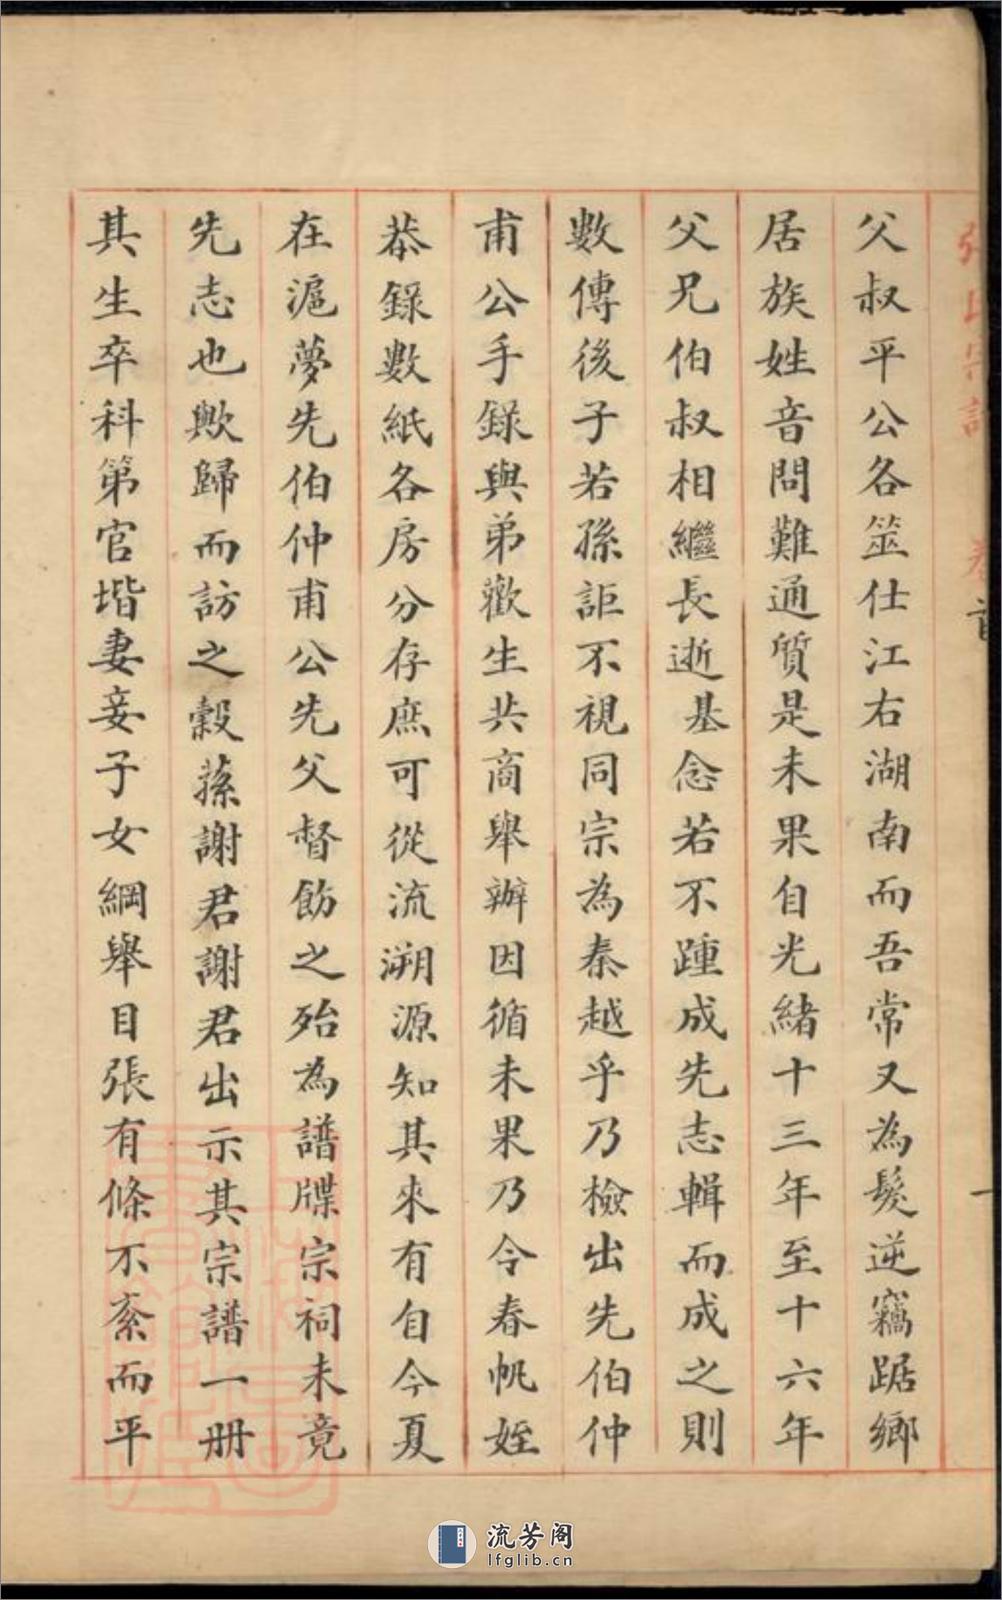 父叔平公各筮仕江右湖南而吾常又為髮逆竊踞鄉
居族姓音問難通質是未果自光緒十三年至十六年
父兄伯叔相繼長逝基念若不踵成先志輯而成之則
數傳後子若孫詎不視同宗為秦越乎乃檢出先伯仲
甫公手錄與弟歡生共商舉辦因循未果乃令春帆姪
恭錄數紙各房分存庶可從流溯源知其來有自今夏
在滬夢先伯仲甫公先父督飭之殆為譜牒宗祠未竟
先志也歟歸而訪之穀蓀謝君謝君出示其宗譜一冊
其生卒科第官堦妻妾子女綱舉目張有條不紊而平
流芳阁
lfglib.cn